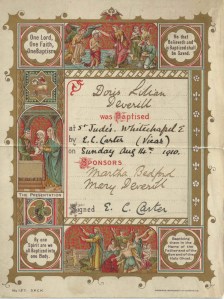 One Lord,
One Faith,
One Baptism
He that
Believeth and
is Baptized shall
be Saved.
Doris Lilian
Deverill
was Baptised
at St Jude's Whitechapel E
by E. C. Carter (Vicar)
on Sunday Aug 14th 1910.
Sponsors
Martha Bedford
Mary Deverill
Signed E. C. Carter
THE PRESENTATION
By one
Spirit are we
all Baptized into
one Body.
Baptizing
them in the
Name of the
Father and of the
Son and of the
Holy Ghost.